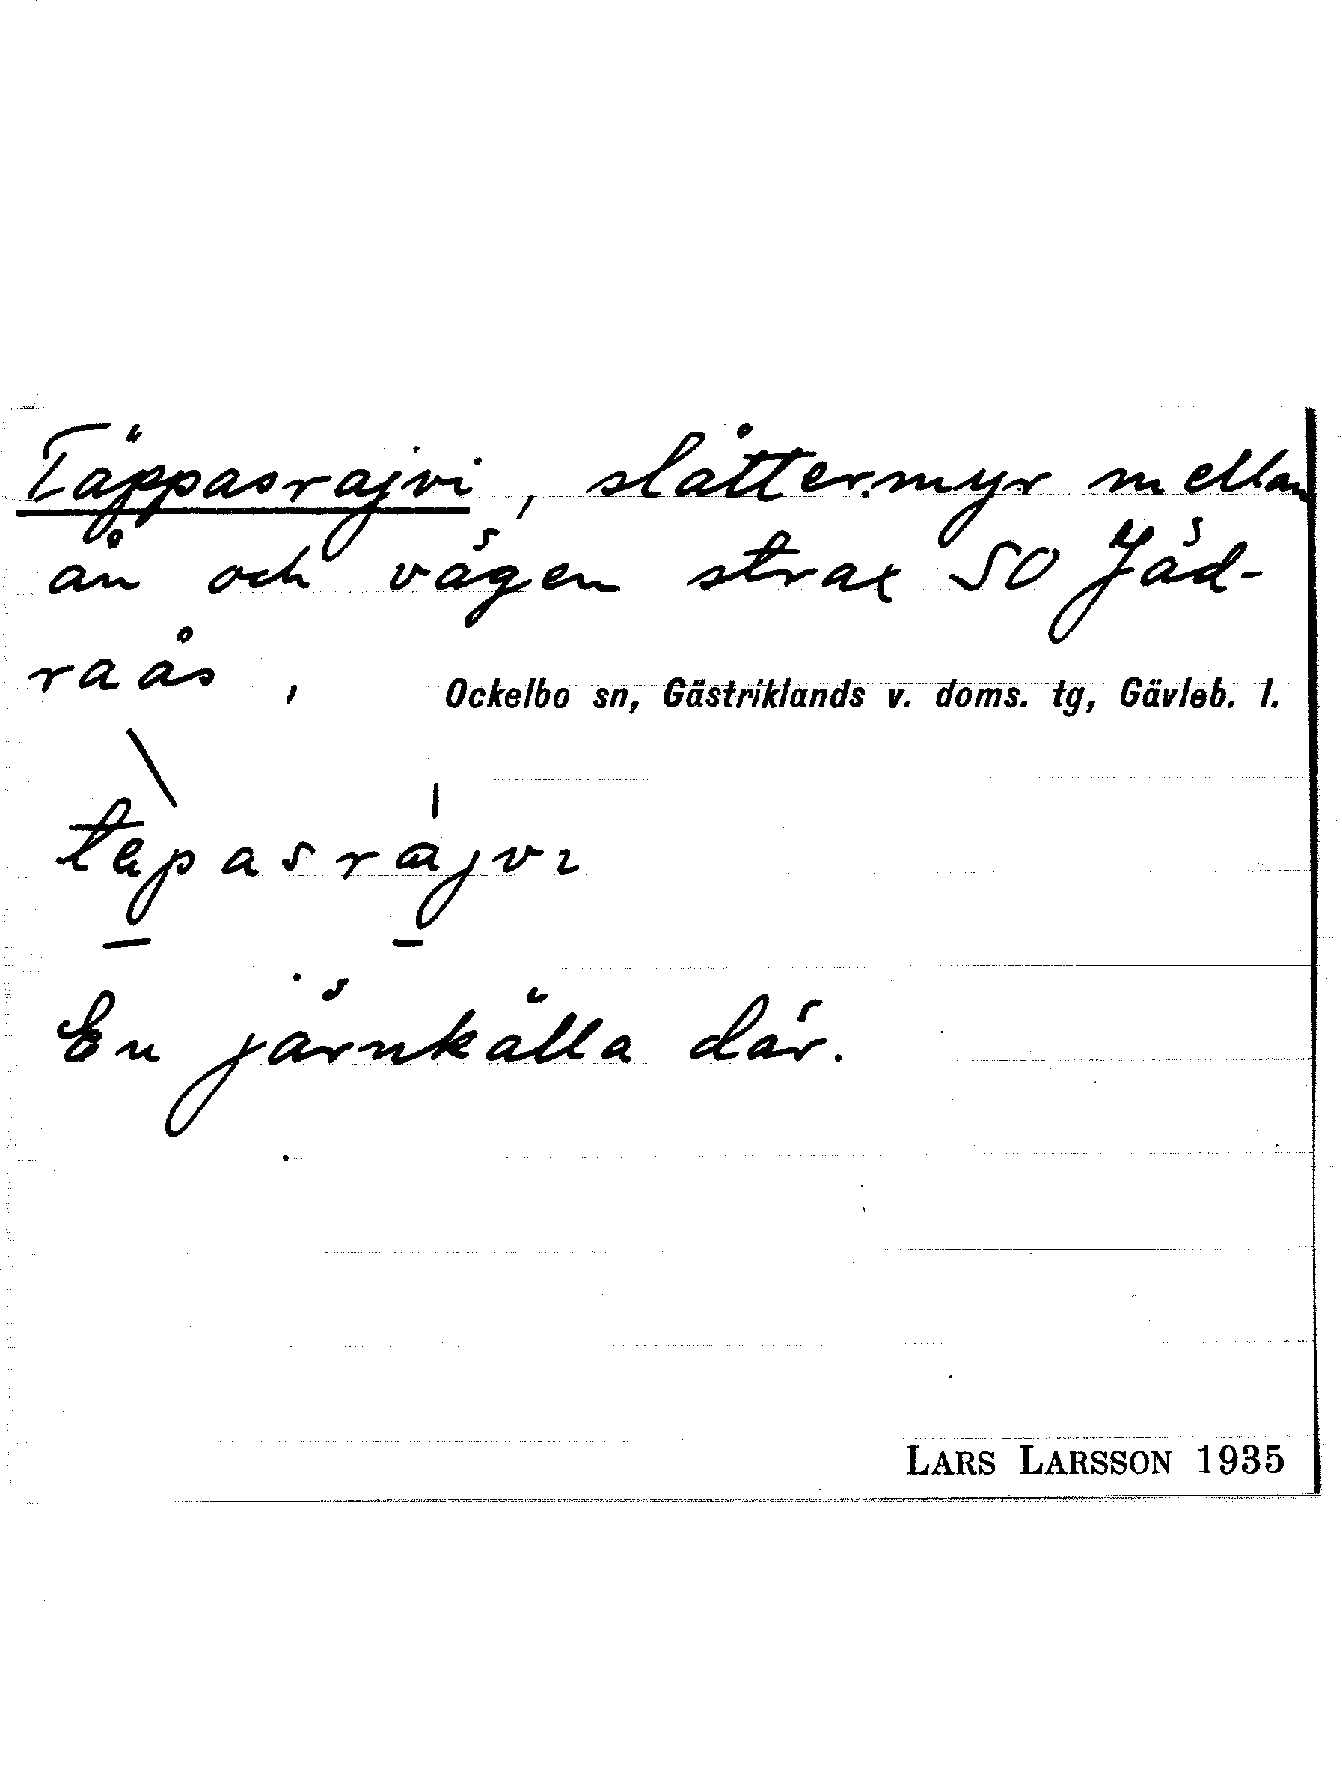 Täppasrajvi, slåttermyr mellan
ån och vägen strax SO Jäd-
raås,
Ockelbo sn, Gästriklands v. doms. tg, Gävleb. l.
tæpasrajvı
En järnkälla där.
LARS LARSSON 1935